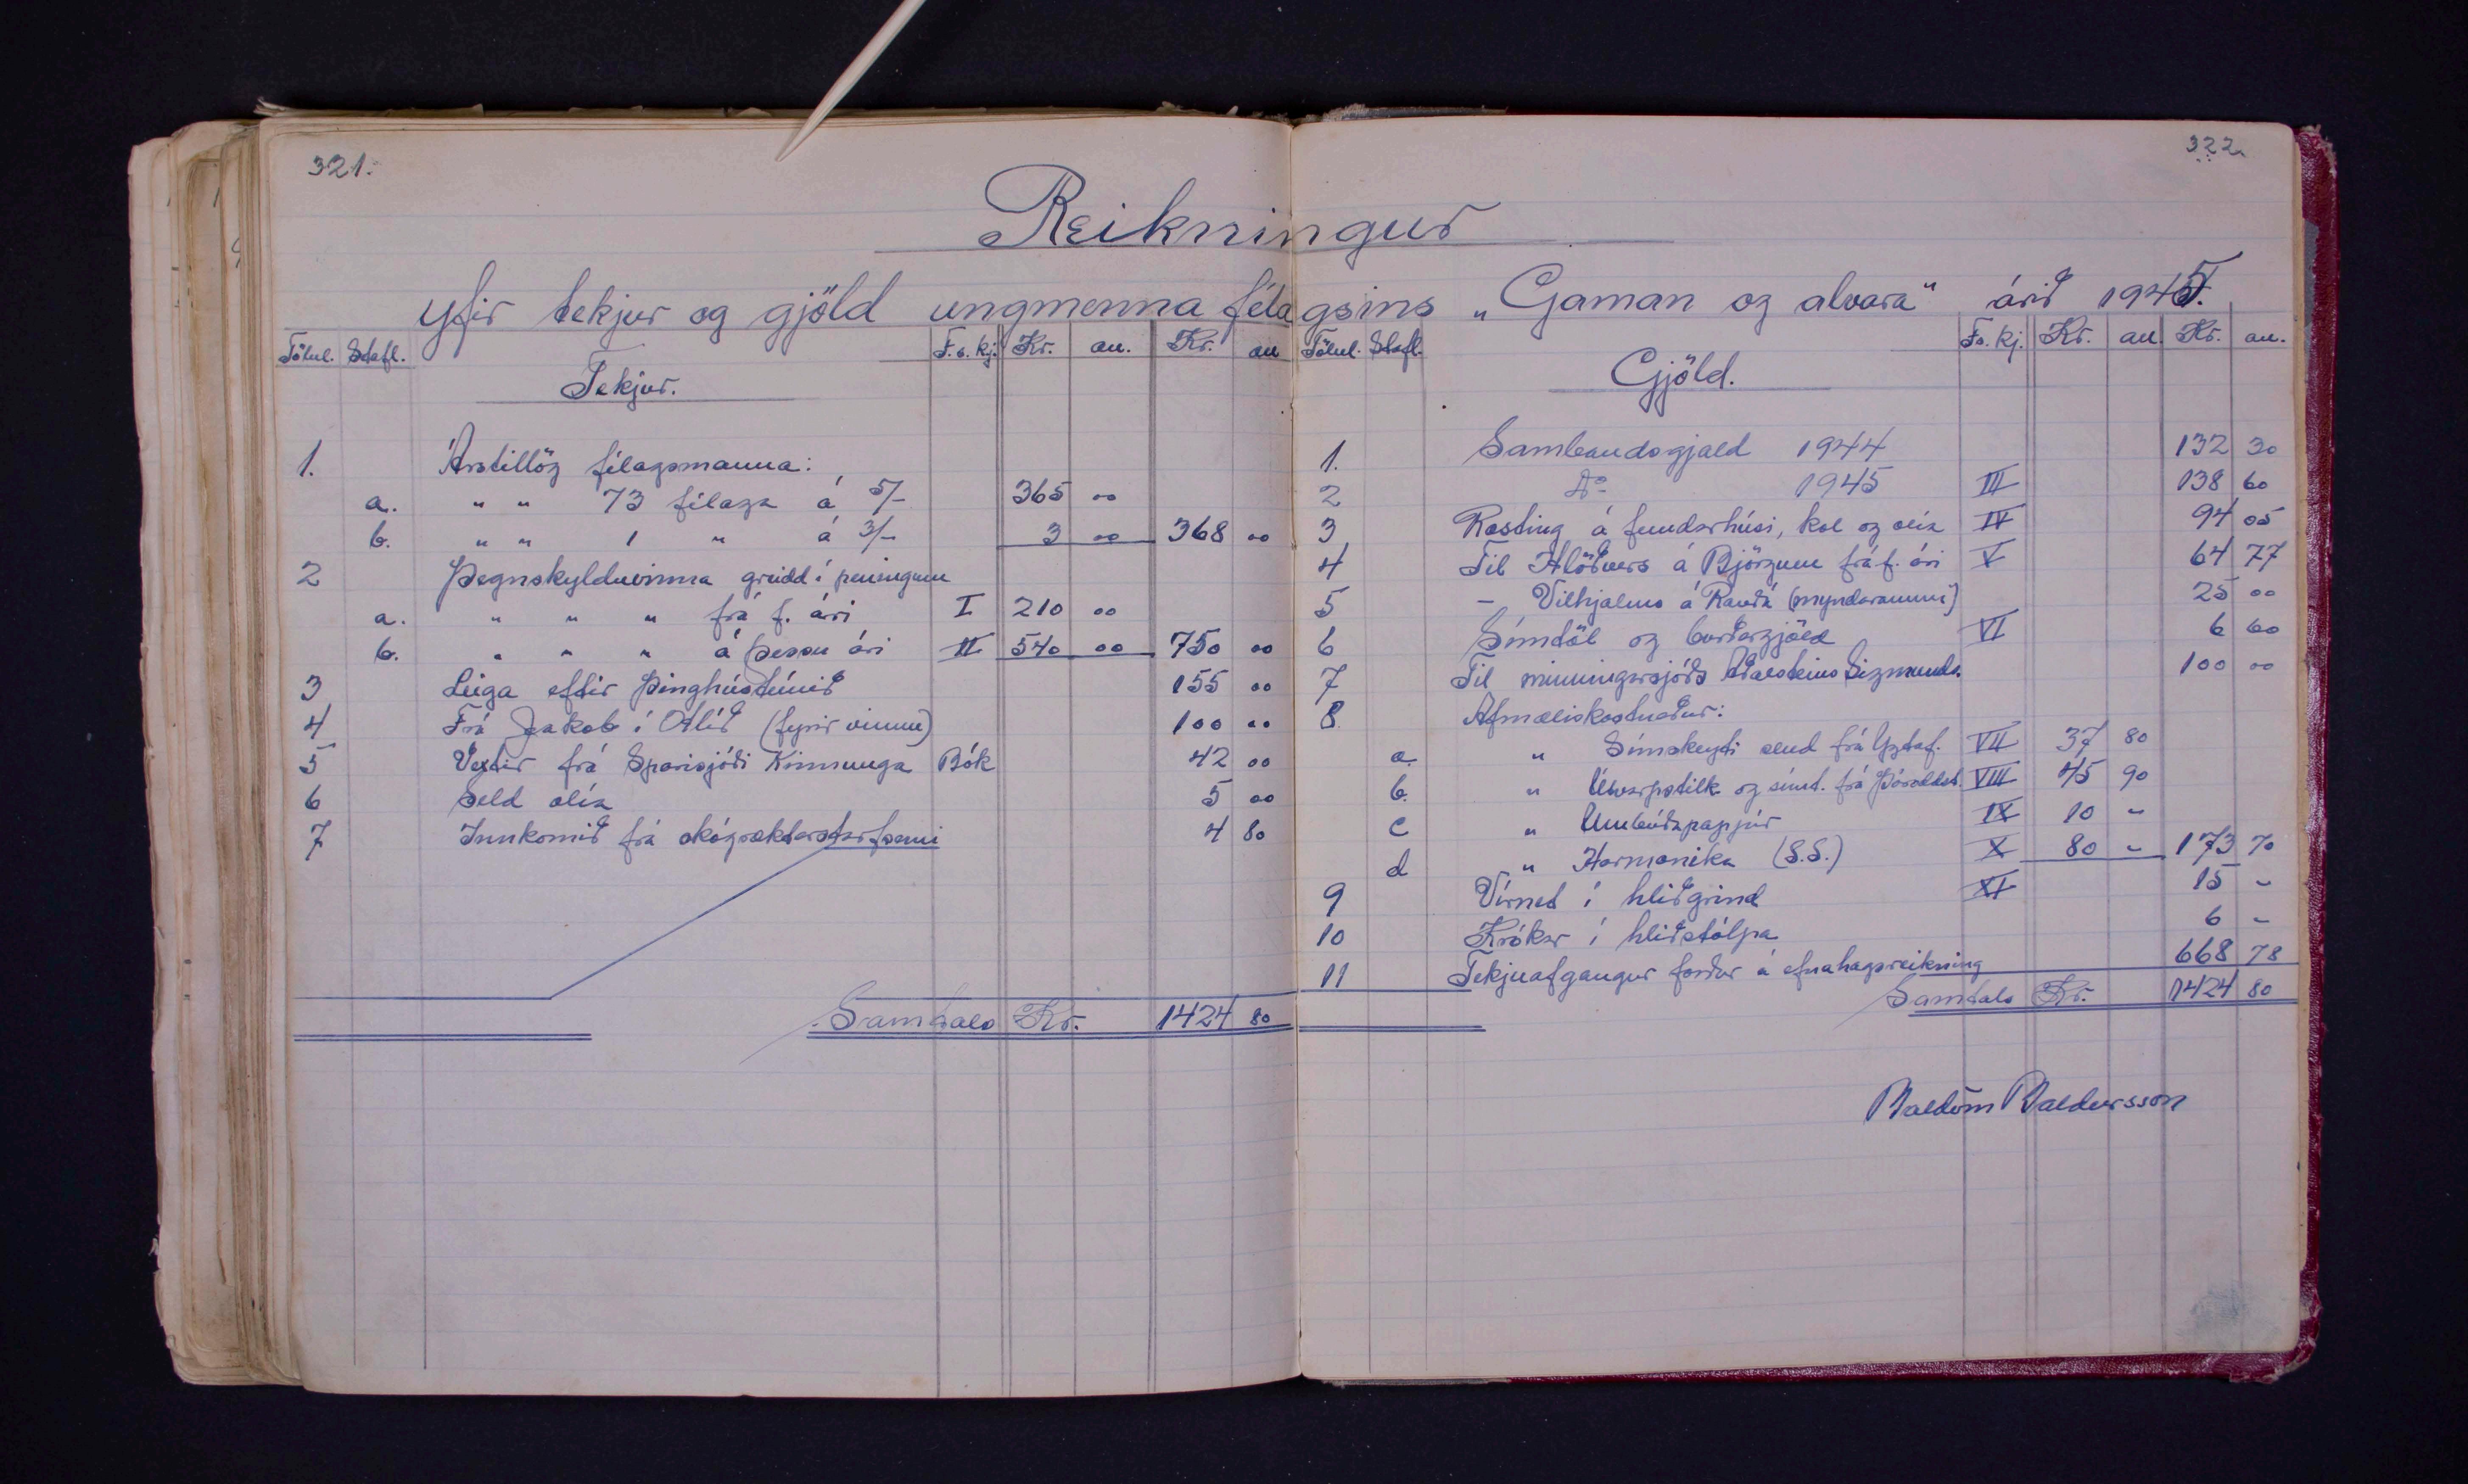 321.
322.
Reikningur
yfir tekjur og gjöld ungmennafélagsins „Gaman og alvara" árið 1945.
Tölul. Stafl. F.s.kj. Kr. au. Kr. au
Tekjur.
1. Árstillög félagsmanna:
a. " " 73 félaga á 5/- 365 00
b. " " 1 " á 3/- 3 00 368 00
2 Þegnskylduvinna greidd í peningum
a. " " " frá f. ári I 210 00
b. " " " á þessu ári II 540 00 750 00
3 Leiga eftir Þinghústúnið 155 00
4 Frá Jakob í Hlíð (fyrir vinnu) 100 00
5 Vextir frá Sparisjóði Kinnunga Bók 42 00
6 Seld olía 5 00
7 Innkomið frá skógræktarstarfsemi 4 80
Samtals Kr. 1424 80
Tölul. Stafl. Fs. kj. Kr. au. Kr. au.
Gjöld.
1. Sambandsgjald 1944 132 30
2 Do 1945 III 138 60
3 Ræsting á fundarhúsi, kol og olía IV 94 05
4 Til Hlöðvers á Björgum frá f. ári V 64 77
5 - Vilhjálms á Rauðá (myndarammi) 25 00
6 Símtöl og burðargjöld VI 6 60
7 Til minningarsjóðs Aðalsteins Sigmunds. 100 00
8. Afmæliskostnaður:
a " Símskeyti send frá Yztaf. VII 37 80
b. " Útvarpstilk. og símt. frá Þóroddst. VIII 45 90
c " Umbúðapappír IX 10 -
d " Harmonika (S.S.) X 80 - 173 70
9 Vírnet í hliðgrind XI 15 -
10 Krókar í hliðstólpa 6 -
11 Tekjuafgangur færður á efnahagsreikning 668 78
Samtals Kr. 1424 80
Baldvin Baldursson